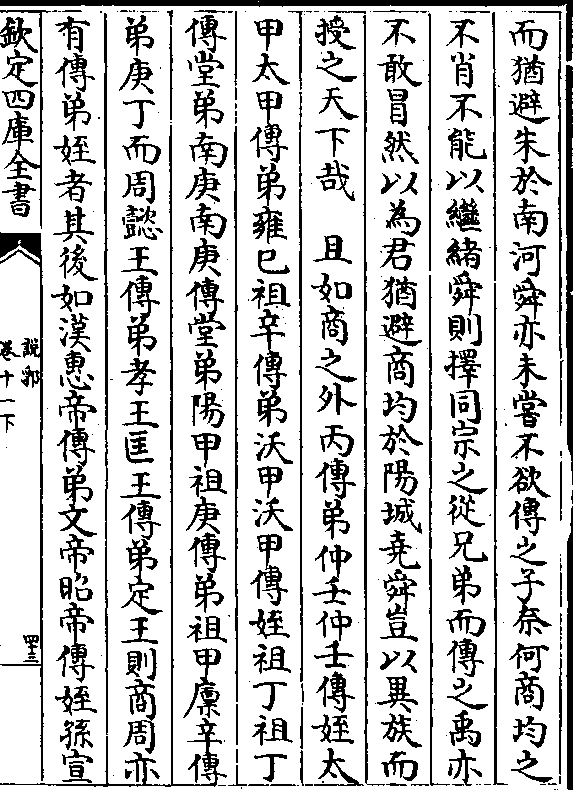 而猶避朱於南河舜亦未嘗不欲傳之子奈何商均之
不肖不能以繼緒舜則擇同宗之從兄弟而傳之禹亦
不敢冒然以為君猶避商均於陽城堯舜豈以異族而
授之天下哉　且如商之外丙傳弟仲壬仲壬傳姪太
甲太甲傳弟雍巳祖辛傳弟沃甲沃甲傳姪祖丁祖丁
傳堂弟南庚南庚傳堂弟陽甲祖庚傳弟祖甲廪辛傳
弟庚丁而周懿王傳弟孝王匡王傳弟定王則商周亦
有傳弟姪者其後如漢惠帝傳弟文帝昭帝傳姪孫宣
欽定四庫全書
說郛
卷十一下
四十三